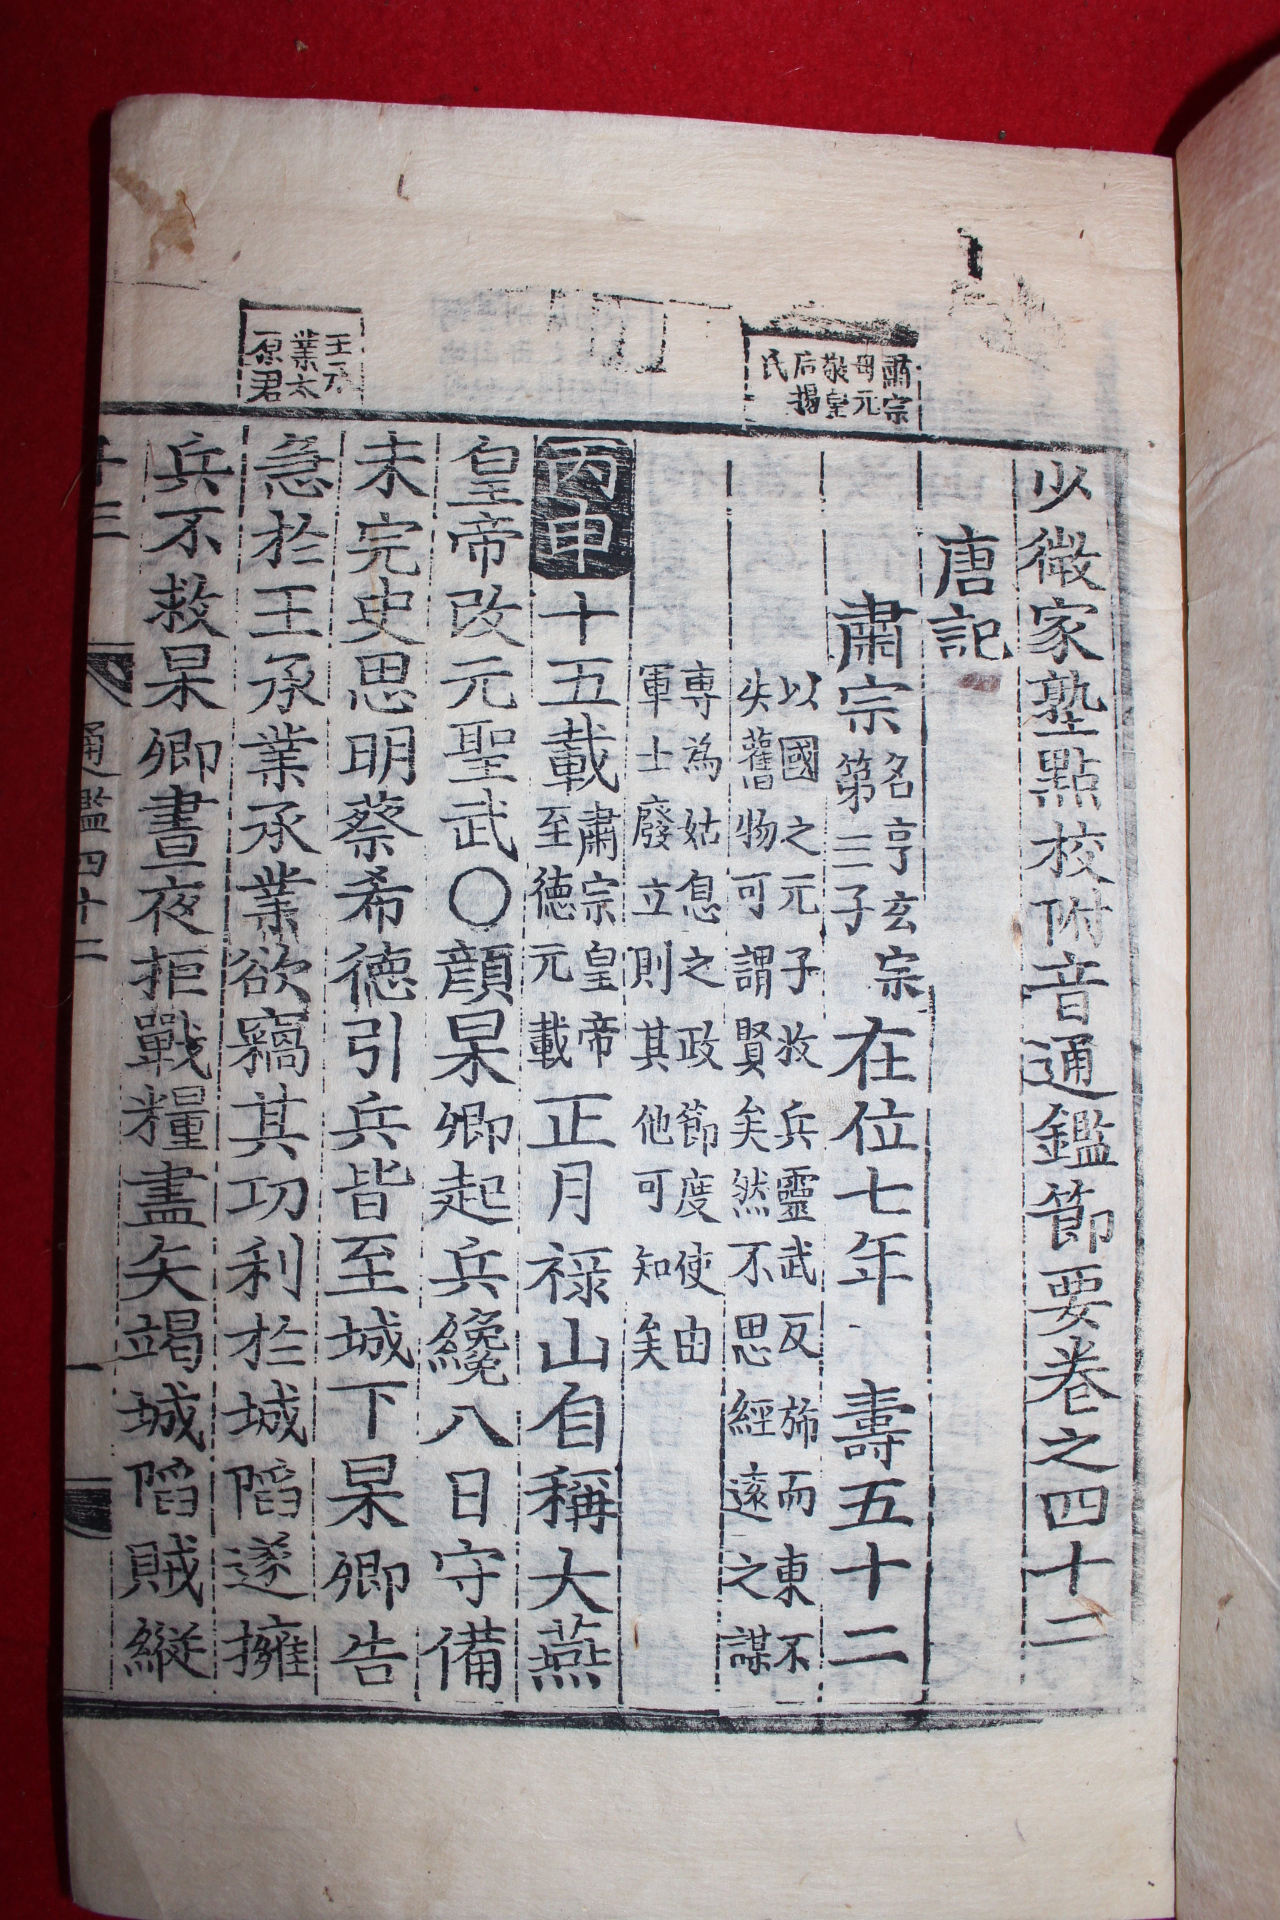 少微家塾點校附音通鑑節要卷之四十二
唐記
肅宗名亨玄宗第三子在位七年 壽五十二
以國之元子收兵靈武反旆而東不
失舊物可謂賢矣然不思經遠之謀
專為姑息之政節度使由
軍士廢立則其他可知矣
丙申十五載肅宗皇帝至德元載正月祿山自稱大燕
皇帝改元聖武○顏杲卿起兵纔八日守備
未完史思明蔡希德引兵皆至城下杲卿告
急於王承業承業欲竊其功利於城陷遂擁
兵不救杲卿晝夜拒戰糧盡矢竭城陷賊縱
肅宗
母元
敬皇
后楊
氏
王承
業太
原君
通鑑四十二
一